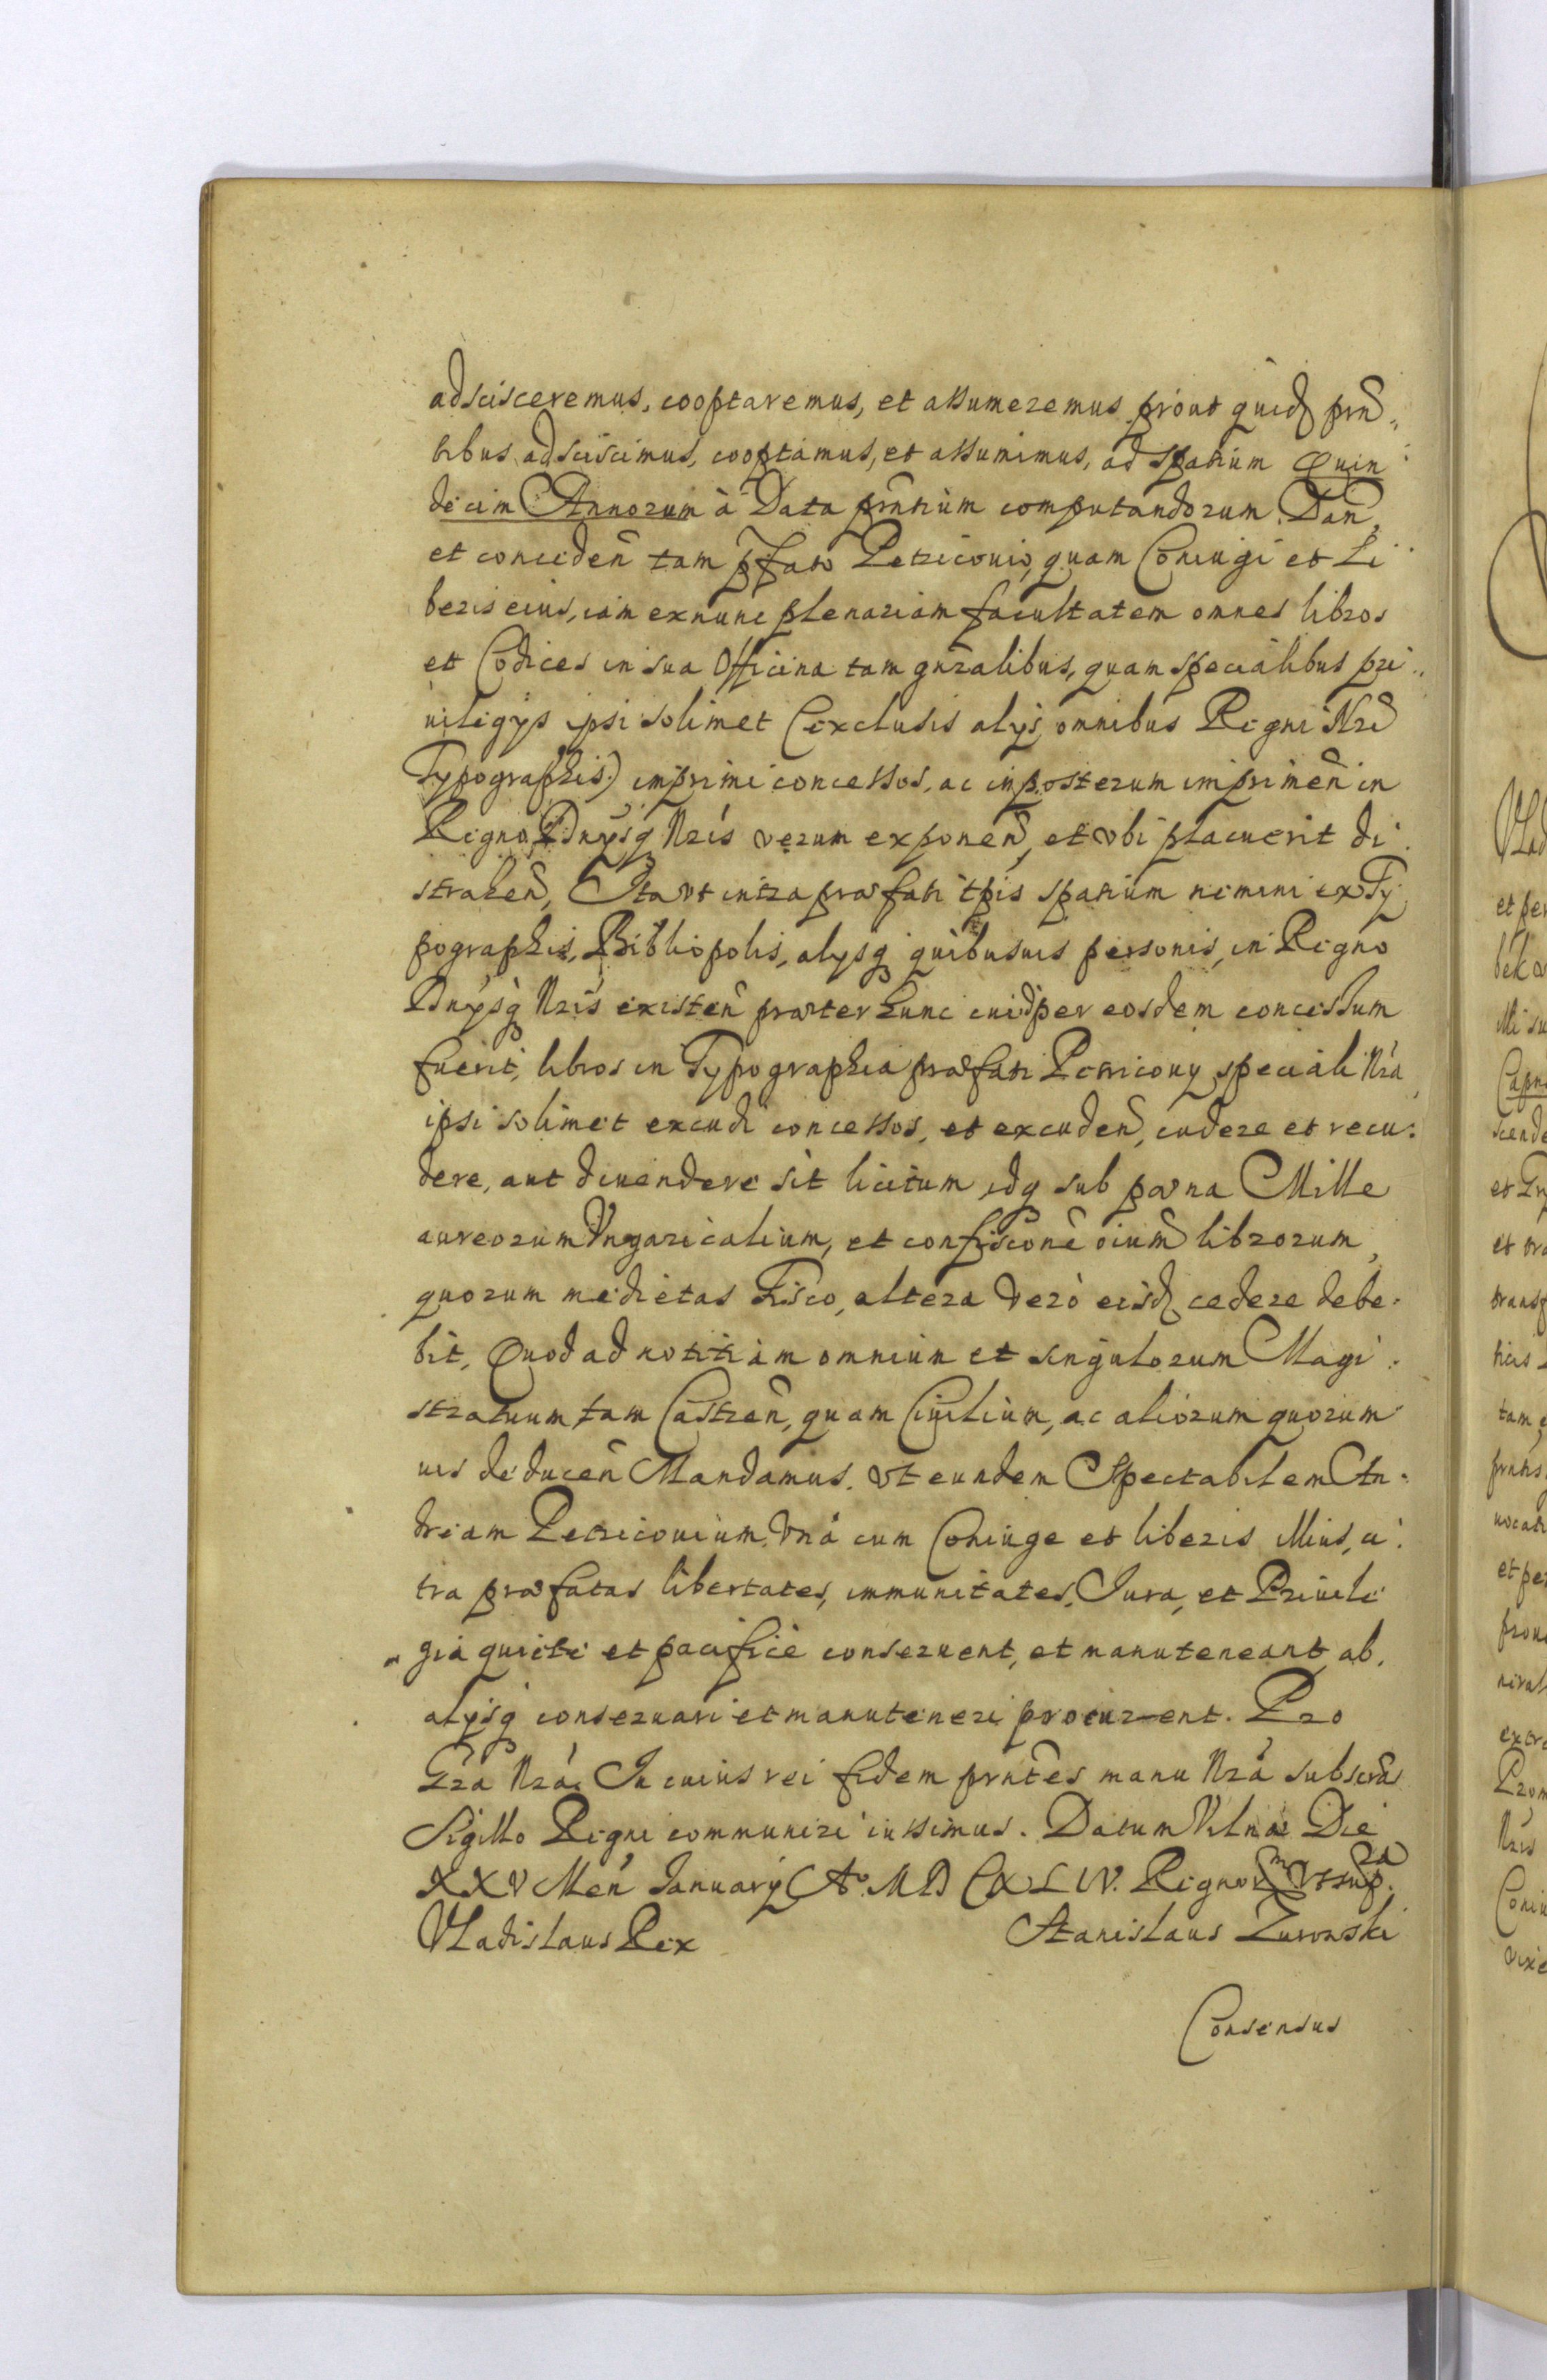 adscisceremus, cooptaremus, et assumeremus prout quid prñ„
tibus adsciscimus, cooptamus, et assumimus, ad spatium Quin
decim Annorum à Data prñtium computandorum. Dañ,
et conceden̄ tam pfato Petricouio, quam Coniugi et Li
beris eius, iam exnunc plenariam facultatem omnes libros
et Codices in sua Officina tam gnr̄alibus, quam specialibus pri„
uilegijs ipsi solimet (exclusis alijs omnibus Regni Nr̄i
Typographis) imprimi concessos, ac inposterum imprimen̄ in
Regno, Dn̄ysq Nr̄is verum exponen̄, et vbi placuerit di:
strahen̄, Ita vt intra præfati tp̄is spatium nemini ex Ty
pographis, Bibliopolis, alysq quibusuis personis, in Regno
Dnysq Nr̄is existen̄ præter hunc cuid per eosdem concessum
fuerit, libros in Typographia præfati Petricouy speciali Nr̄a
ipsi solimet excudi concessos, et excuden̄, cudere et recu:
dere, aut diuendere sit licitum, idq sub pœna Mille
aureorum Vngaricalium, et confiscone oium librorum,
quorum medietas Fisco, altera verò eisd cedere debe:
bit, Quod ad notitiam omnium et singulorum Magi:
stratuum tam Castren̄, quam Ciuilium, ac aliorum quorum
uis deducen̄ Mandamus. vt eundem Spectabilem An:
dream Petricouium, vnà cum Coniuge et liberis illius, ci:
tra præfatas libertates, immunitates, Iura, et Priuile
gia quietè et pacificè conseruent, et manuteneant, ab.
alysq conseruari et manuteneri procurent. Pro
Gr̄a Nr̄a. In cuius rei fidem prntēs manu Nr̄a subscrās
Sigillo Regni communiri iussimus. Datum Vilnæ Die
XXV Men̄ Ianuary Aº. MDCXLIV. Regnor̄m vt sup̄a.
Vladislaus Rex Stanislaus Zurowski
Consensus